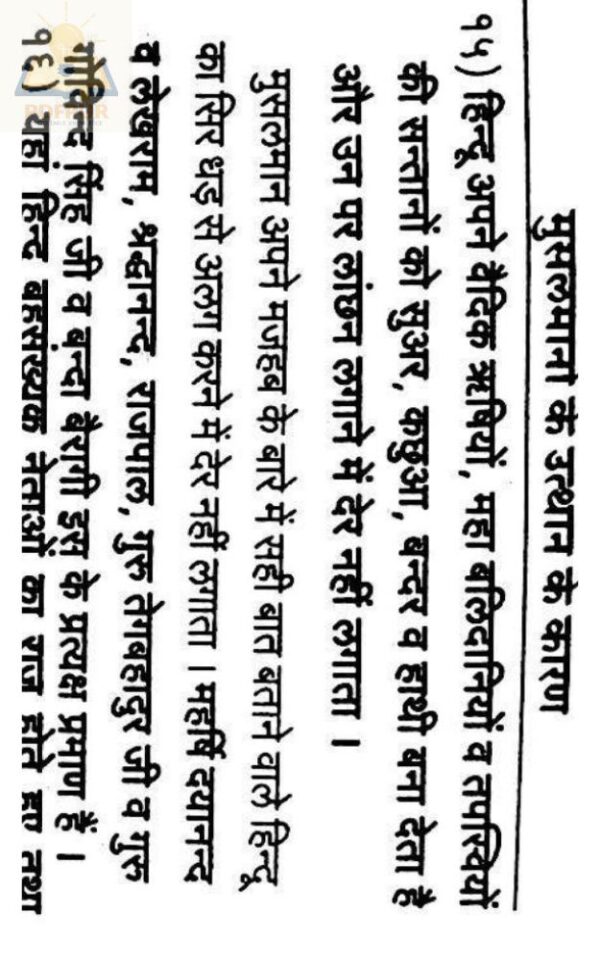 मुसलमानों के उत्थान के कारण
१५) हिन्दू अपने वैदिक ऋषियों, महा बलिदानियों व तपस्वियों
की सन्तानों को सुअर, कछुआ, बन्दर व हाथी बना देता है
और उन पर लांछन लगाने में देर नहीं लगाता ।
मुसलमान अपने मजहब के बारे में सही बात बताने वाले हिन्दू
का सिर धड़ से अलग करने में देर नहीं लगाता । महर्षि दयानन्द
व लेखराम, श्रद्धानन्द, राजपाल, गुरु तेगबहादुर जी व गुरु
गोविन्द सिंह जी व बन्दा बैरागी इस के प्रत्यक्ष प्रमाण हैं ।
१६) यहां हिन्दू बहुसंख्यक नेताओं का राज होते हुए तथा